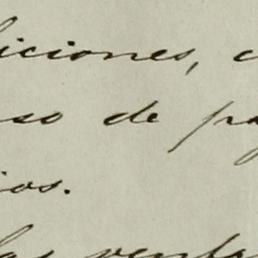 iciones, c
so de pa
ios.
las venta